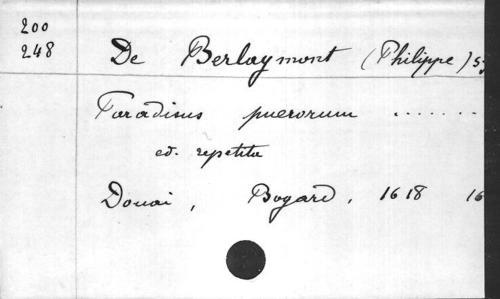 200
248
De Berlaymont (Philippe)
Paradisus puerorum ......
ed. repetita
Douai, Bogard, 1618 16